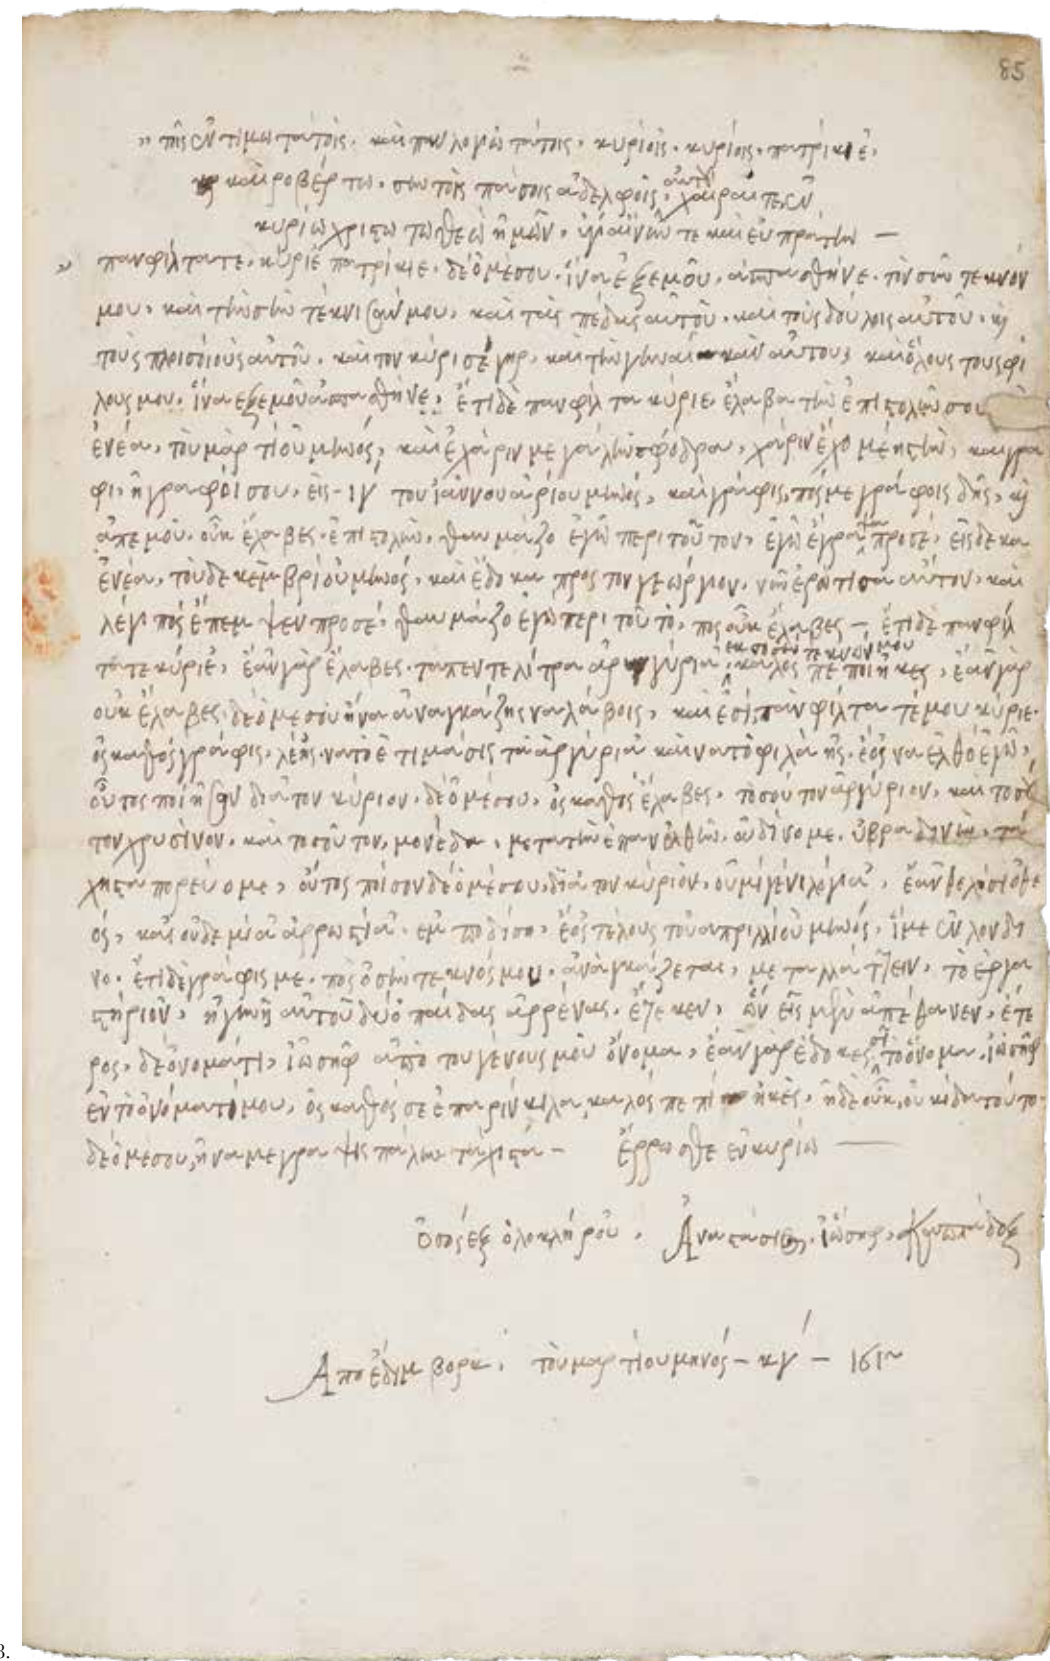 85
τῆς ἐντιμωτάτοις. καὶ πανλογιωτάτοις. κυρίοις. κυρίοις. πατρίκιε.
καὶ ροβέρτω. σὺν τοῖς πάσοις ἀδελφοῖς αὐτοῦ, χαίραιτε ἐν
κυρίω χριστω τω θεῶ ἡμῶν, ὑγιαίνειν τε καὶ εὐπράτειν —
πανφίλτατε. κύριε πατρίκιε. δέομέσου. ἵνα ἐξεμοῦ. ἀσπασθῆνε. τὶν σὴν τεκνόν
μου. καὶ τὴν σὴν τέκνισάν μου. καὶ τὰς πέδας αὐτοῦ. καὶ τοὺς δούλοις αὐτοῦ. κὶ
τοὺς πλισσίους αὐτοῦ. καὶ τον κύρι σέγηρ. καὶ τὴν γυναίκαν αὐτους καὶ ὅλους τους φί
λους μου. ἵνα ἐξεμοῦ ἀσπασθῆνε. ἔτι δὲ πανφίλτα κύριε. ἔλαβα τὴν ἐπιστολήν σου
ἐνέα. τοῦ μαρτίου μηνός, καὶ ἐχάριν μεγάλην σφόδρα, χάριν ἔχο μέγιστην, καὶ γρα
φὶ, ἡ γραφόι σου, εἰς - ιγ του ἰαννουαρίου μηνός, καὶ γράφις, πός με γράφοις δῆς, κὶ
ἀπεμοῦ. οὐκ ἔλαβες. ἐπιστολὴν. θαυμάζο ἐγὼ περὶ τούτον, ἐγὼ ἔγραψα προσέ, εἰς δεκα
ἐνέα, τοῦ δεκεμβρίου μηνός, καὶ ἔδοκα προς τον γεώργιον, νῦν ἐρώτισα αὐτον, καὶ
λέγι πός ἔπεμψεν προσέ, θαυμάζο ἐγὼ περὶ τοῦτο, πος οὐκ ἔλαβες — ἔτι δὲ πανφίλ
τατε κύριε, ἐὰν γὰρ ἔλαβες. τα πεντε λίτρα ἀργύρια ἐκ τοῦ σου τεκνόν μου, καλος πεποίηκες, ἐὰν γὰρ
οὐκ ἔλαβες. δεόμεσου ἥνα ἀναγκάζης να λάβοις, καὶ ἐσὶ πανφίλτατέ μου κύριε.
ὁς καθός γράφις, λέγης. νατο ἑτιμάσις τὰ ἀργύρια καὶ νατο φιλάγης. ἑός να ἐλθο ἐγώ,
οὗτος ποίησον διὰ τον κύριον. δεόμέσου, ὁς καθός ἔλαβες. τοσούτον ἀργύριον, καὶ τοσού
τον χρυσίνον. καὶ τοσοῦτον, μονέδα, μετὰ τὴν ἐπανελθὴν. οὐ δίνομε. ὑβρα
χηστα πορεύομε, οὗτος ποίσον δεόμέσου, διὰ τον κύριον, οὐ μὶ γένι λέγια, ἐὰν θελήσι ὁ θε
ός, καὶ οὐδεμία ἀρρωστία. ἐμποδίσι, ἑός τέλους τοῦ ἀπριλλίου μηνός, ἵμε ἐν λονδι
νο. ἔτι δὲ γράφις με. πός ὁ σὴν τεκνός μου. ἀναγκάζεται, μεταλλάττειν, τὸ ἐργα
στήριον, ἡ γυνὴ αὐτοῦ δύο παίδας ἀρρένας. ἔτεκεν, ὧν εἷς μὲν ἀπέθανεν, ἑτε
ρος, δε ὀνοματι, ἰωσὴφ ἀπὸ του γένους μου ὄνομα, ἐὰν γὰρ ἔδοκες τὸ ὄνομα, ἰωσὴφ
ἐν τὸ ὀνόματί μου, ὁς καθός σε ἐπαρίνκιλα, καλός πεπίηκές, ἠδὲ οὐκ, οὐκ ίδα τοῦτο.
δεόμεσου, ἡνα με γράψις πάλιν τάχιστα — ἔρρωσθε ἐν κυρίω —
ὁ σὸς ἐξ ὁλοκλήρου, Ἀναστάσιος. ἰώσηφ,
Ἀπο ἐδιμβορκ. τοῦ μαρτίου μηνός - κγ - 1612
3.